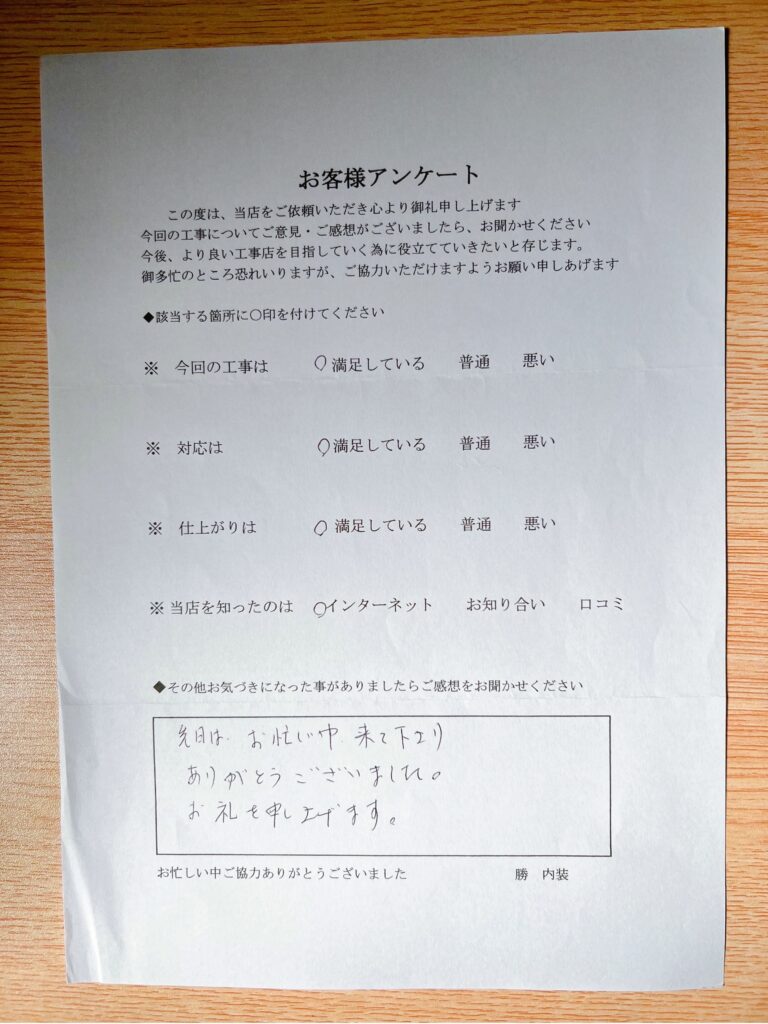 お客様アンケート
この度は、当店をご依頼いただき心より御礼申し上げます
今回の工事についてご意見・ご感想がございましたら、お聞かせください
今後、より良い工事店を目指していく為に役立てていきたいと存じます。
御多忙のところ恐れいりますが、ご協力いただけますようお願い申しあげます
◆該当する箇所に〇印を付けてください
※ 今回の工事は ○満足している 普通 悪い
※ 対応は ○満足している 普通 悪い
※ 仕上がりは ○満足している 普通 悪い
※当店を知ったのは ○インターネット お知り合い 口コミ
◆その他お気づきになった事がありましたらご感想をお聞かせください
先日は、お忙い中 来て下より
ありがとうございました。
お礼を申し上げます。
お忙しい中ご協力ありがとうございました 勝 内装